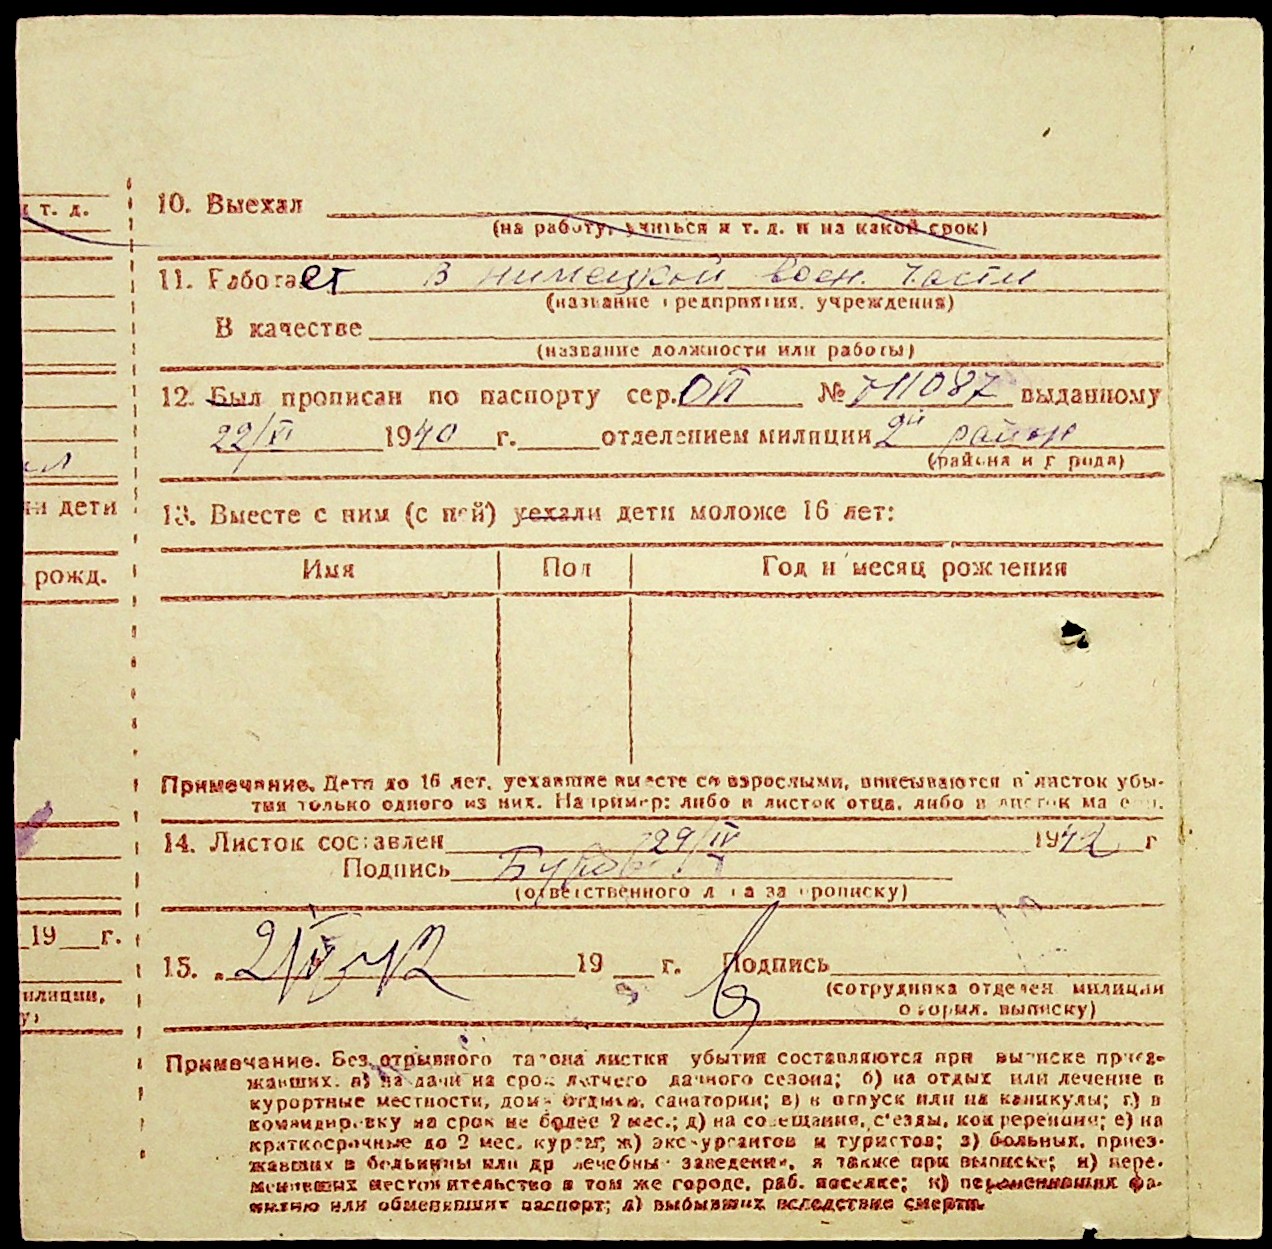 т. д.
10. Выехал
(на работу, учиться и т. д. и на какой срок)
11. Работает в нимецкой воен. части
(название предприятия, учреждения)
В качестве
(название должности или работы)
12. Был прописан по паспорту сер. ОП № 711087 выданному
22/VI 1940 г. отделением милиции 2й район
(района и города)
13. Вместе с ним (с ней) уехали дети моложе 16 лет:
дети
Имя Пол Год и месяц рождения
рожд.
Примечание. Дети до 16 лет, уехавшие вместе со взрослыми, вписываются в листок убы-
тия только одного из них. Например: либо в листок отца, либо в листок матери.
14. Листок составлен 29/IV 1942 г
Подпись
(ответственного лица за прописку)
19 г.
15. „ 2/V 42 19 г. Подпись
(сотрудника отделен. милиции
оформл. выписку)
милиции,
Примечание. Без отрывного талона листки убытия составляются при выписке приез-
жавших: а) на дачи на срок летнего дачного сезона; б) на отдых или лечение в
курортные местности, дома отдыха, санатории; в) в отпуск или на каникулы; г) в
командировку на срок не более 2 мес.; д) на совещания, с'езды, конференции; е) на
краткосрочные до 2 мес. курсы; ж) экскурсантов и туристов; з) больных, приез-
жавших в больницы или др лечебные заведения, а также при выписке; и) пере-
менивших местожительство в том же городе, раб. поселке; к) переменивших фа-
милию или обменявших паспорт; л) выбывших вследствие смерти.